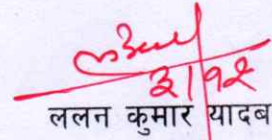 ३।१२
ललन कुमार यादब